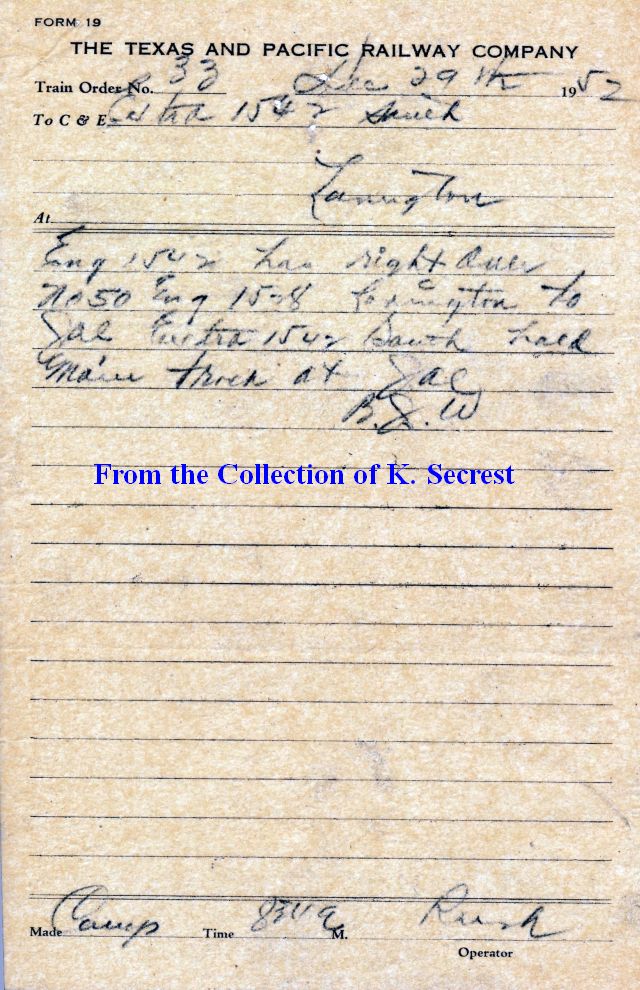 FORM 19
THE TEXAS AND PACIFIC RAILWAY COMPANY
Train Order No. 33 Dec 29th 1952
To C & E Extra 1542 South
Lovington
At
Eng 1542 has right over
No 50 Eng 1528 Lovington to
Jal Extra 1542 South hold
Main track at Jal
B.J.W
From the Collection of K. Secrest
Made Comp Time M. Rush
Operator